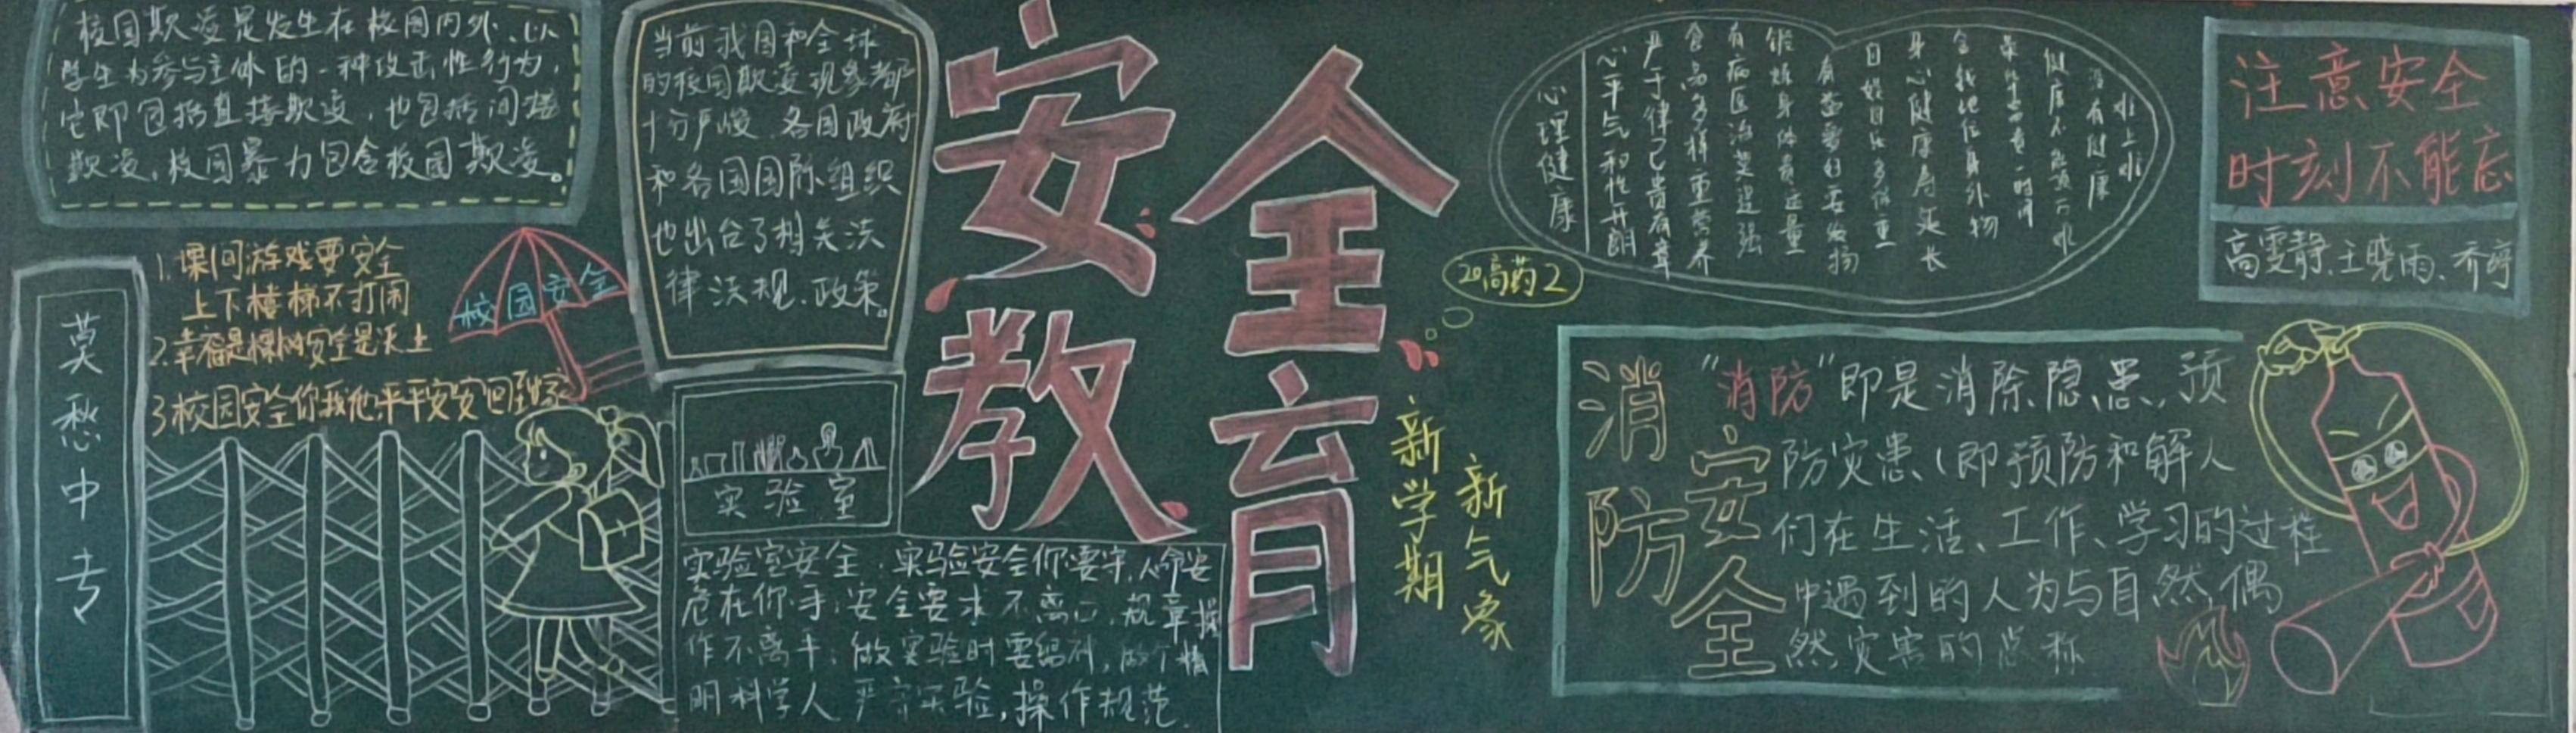 校园欺凌是发生在校园内外、以
学生为参与主体的一种攻击性行为,
它即包括直接欺凌,也包括间接
欺凌,校园暴力包含校园欺凌。
莫愁中专
1.课间游戏要安全
上下楼梯不打闹
2.幸福是棵树安全是沃土
3.校园安全你我他平平安安回到家
校园安全
当前我国和全球
的校园欺凌现象都
十分严峻、各国政府
和各国国际组织
也出台了相关法
律法规、政策。
实验室
实验室安全:实验安全你要守,人命安
危在你手;安全要求不离口,规章操
作不离手;做实验时要编码,做个精
明科学人 严守实验,操作规范.
安全
教育
新学期
新气象
20高药2
心理健康
心平气和性开朗
严于律己贵有章
食品多样重营养
有病医治要趁强
锻炼身体贵适量
身心健康寿延长
金钱地位身外物
健康不
没有健康
注意安全
时刻不能忘
高雯静、王晓雨、乔婷
消防
安全
"消防"即是消除隐患,预
防灾患(即预防和解人
们在生活、工作、学习的过程
中遇到的人为与自然,偶
然灾害的总称